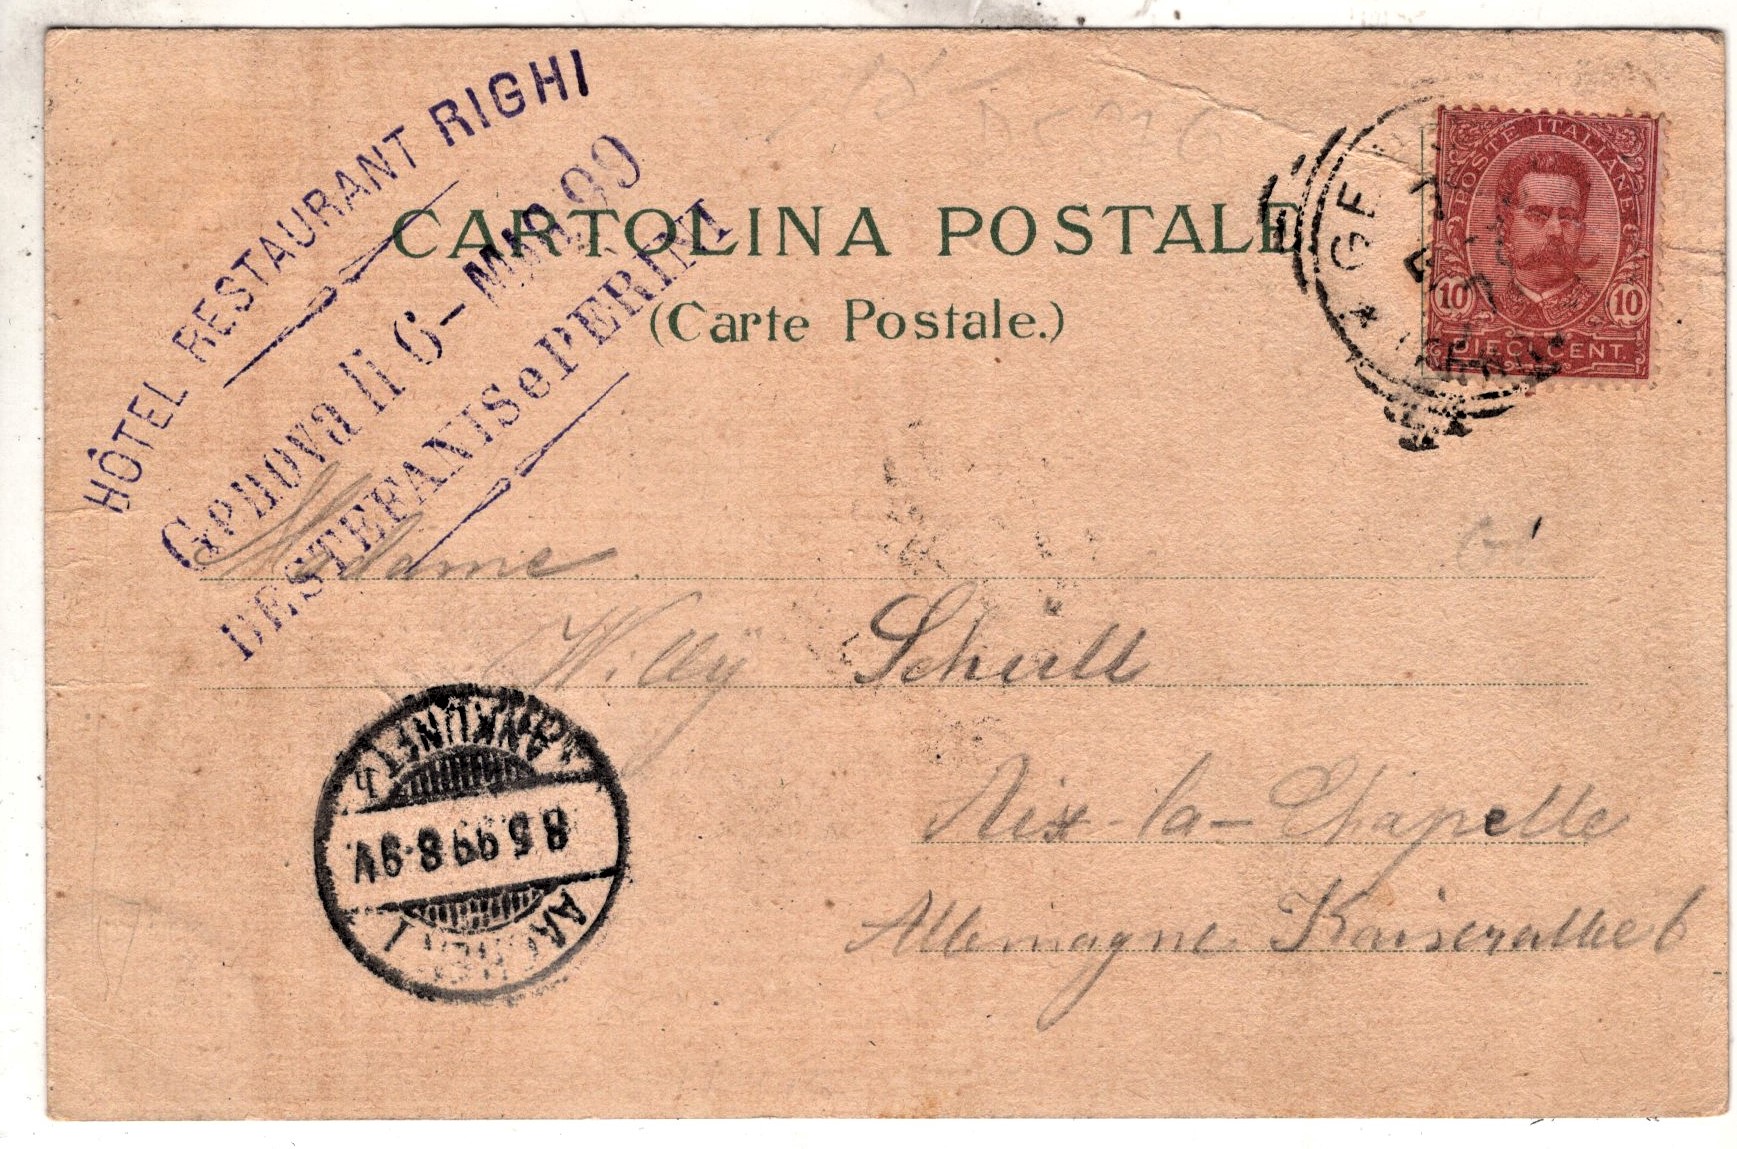 HÔTEL RESTAURANT RIGHI
Genova li 6-MAG.99
DESTEFANIS e PERINI
CARTOLINA POSTALE
(Carte Postale.)
POSTE ITALIANE
10 10
DIECI CENT.
Madame
Willÿ Schüll
Aix-la-Chapelle
Allemagne. Kaiserallee 6
ANKUNFT
8.5.99 8-9V.
AACHEN 1